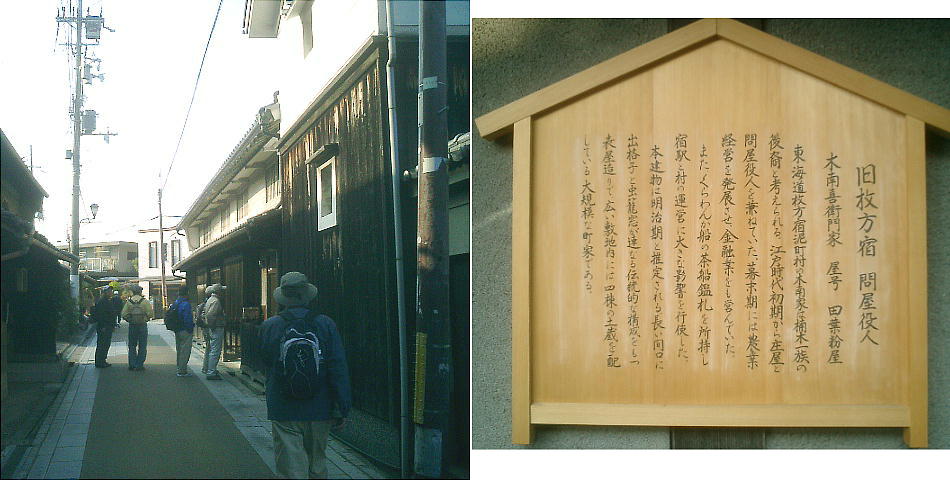 旧枚方宿 問屋役人
木南喜衛門家 屋号 田葉粉屋
東海道枚方宿泥町村の木南家は楠木一族の
後裔と考えられる。江戸時代初期から庄屋と
問屋役人を兼ねていた。幕末期には農業
経営を発展させ金融業をも営んでいた。
またくらわんか船の茶船鑑札を所持し
宿駅と村の運営に大きな影響を行使した。
本建物は明治期と推定される長い間口に
出格子と虫籠窓が連なる伝統的な構成をもつ
表屋造りで広い敷地内には四棟の土蔵を配
している大規模な町家である。